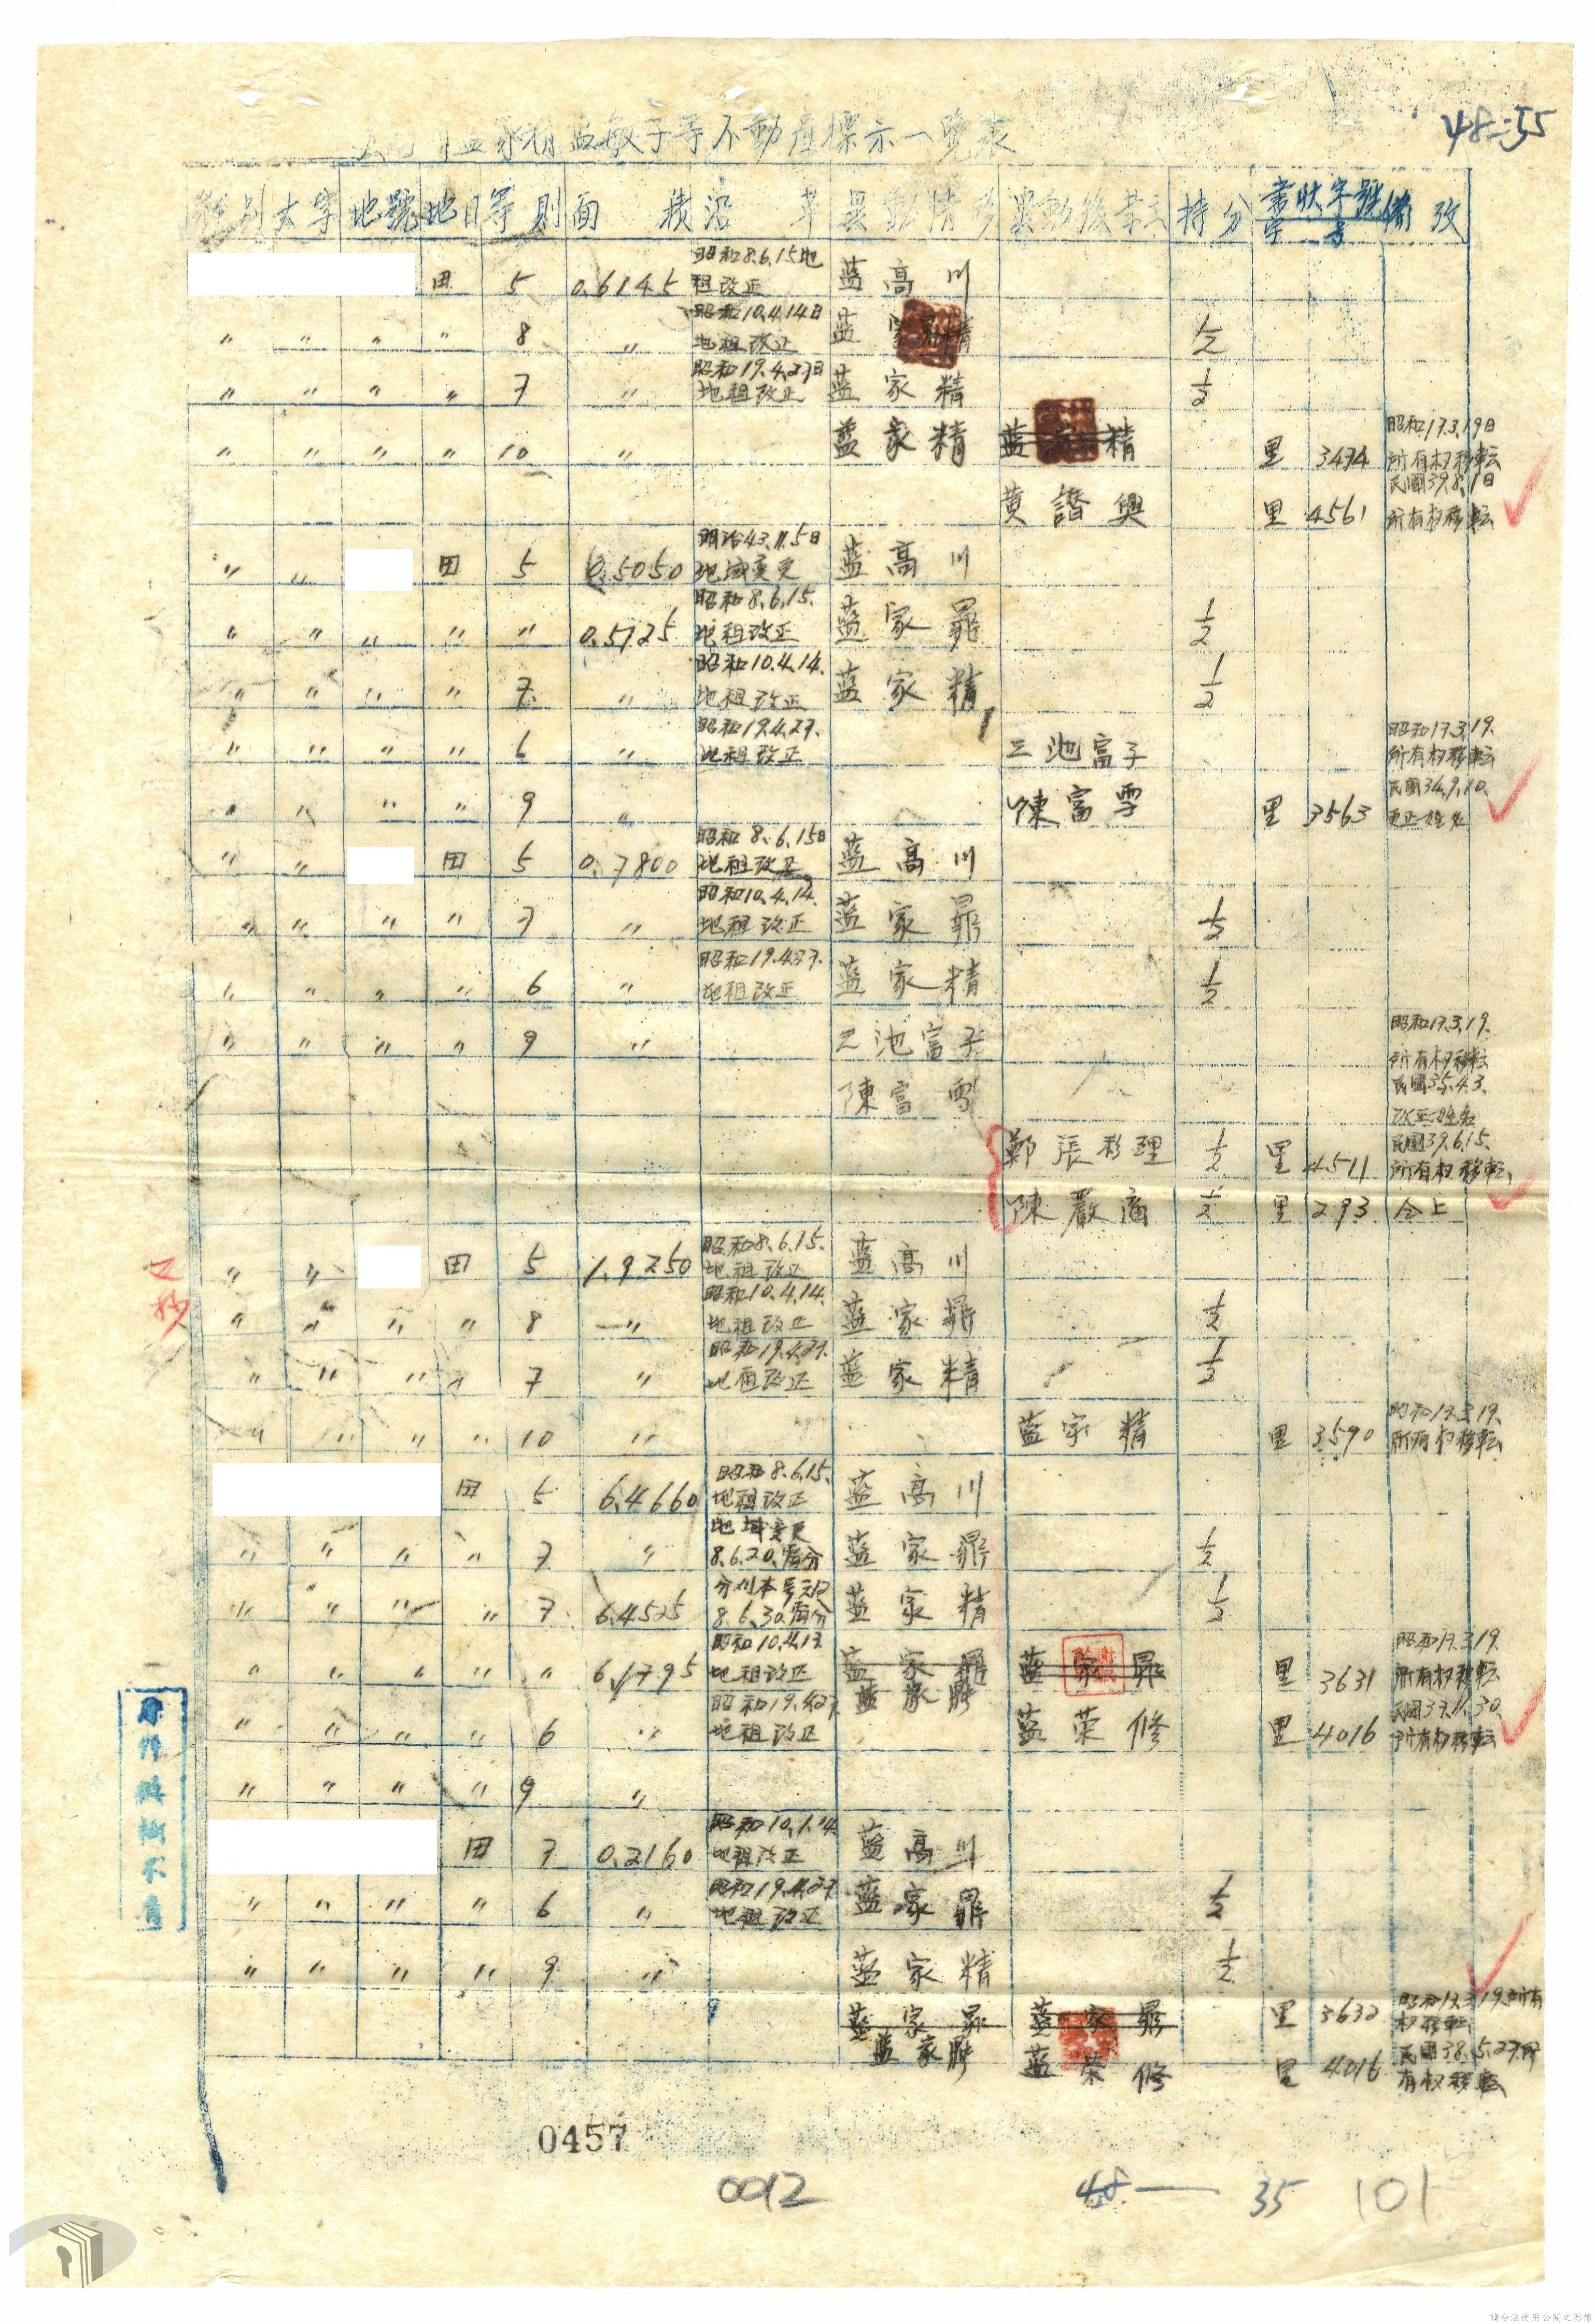 48-35
藍家精 藍敏子等不動產標示一覽表
鄉別 大字 地號 地目 等則 面積 沿革 異動情形 異動後業主 持分 書狀字號 字 号 備攷
田 5 0.6145 昭和8.6.15地租改正 藍高川
〃 〃 〃 〃 8 〃 昭和10.4.14日地租改正 藍家 精 1/2
〃 〃 〃 〃 7 〃 昭和19.4.27日地租改正 藍家精 1/2
〃 〃 〃 〃 10 〃 藍家精 藍 精 里 3474 昭和17.3.19日所有权移転
黄讃興 里 4561 民國39.8.1日所有权移転
〃 〃 田 5 0.5050 明治43.11.5日地域変更 藍高川
〃 〃 〃 〃 〃 0.5725 昭和8.6.15.地租改正 藍家鼎 1/2
〃 〃 〃 〃 7 〃 昭和10.4.14.地租改正 藍家精 1/2
〃 〃 〃 〃 6 〃 昭和19.4.27.地租改正 三池富子 昭和17.3.19.所有权移転
〃 〃 〃 〃 9 〃 陳富雪 里 3563 民國34.9.10.更正姓名
〃 〃 田 5 0.7800 昭和8.6.15日地租改正 藍高川
〃 〃 〃 〃 7 〃 昭和10.4.14.地租改正 藍家鼎 1/2
〃 〃 〃 〃 6 〃 昭和19.4.27.地租改正 藍家精 1/2
〃 〃 〃 〃 9 〃 三池富子 昭和17.3.19.所有权移転
陳富雪 民國35.4.3.改正姓名
鄭張彩理 1/2 里 4511 民國39.6.15.所有权移転
陳嚴滴 1/2 里 293 仝上
又抄
〃 〃 田 5 1.9250 昭和8.6.15.地租改正 藍高川
〃 〃 〃 〃 8 〃 昭和10.4.14.地租改正 藍家鼎 1/2
〃 〃 〃 〃 7 〃 昭和19.4.27.地租改正 藍家精 1/2
〃 〃 〃 〃 10 〃 藍家精 里 3590 昭和17.3.19.所有权移転
田 5 6.4660 昭和8.6.15.地租改正 藍高川
〃 〃 〃 〃 7 〃 地域変更8.6.20. 藍家鼎 1/2
〃 〃 〃 〃 7 6.4525 分 本号 8.6.30. 藍家精 1/2
〃 〃 〃 〃 〃 6.1795 昭和10.4.17.地租改正 藍家鼎 藍家昇 藍家鼎 里 3631 昭和17.3.19.所有权移転
〃 〃 〃 〃 6 〃 昭和19.4.27.地租改正 藍荣修 里 4016 民國37.11.30.所有权移転
〃 〃 〃 〃 9 〃
田 7 0.2160 昭和10.1.14.地租改正 藍高川
〃 〃 〃 〃 6 〃 昭和19.4.27.地租改正 藍家鼎 1/2
〃 〃 〃 〃 9 〃 藍家精 1/2
藍家昇 藍家鼎 里 3632 昭和17.3.19.所有权移転
藍家昇 藍荣修 里 4016 民國38.5.27.所有权移転
原件模糊不清
0457
0012
48—35
101
請合法使用公開之影像